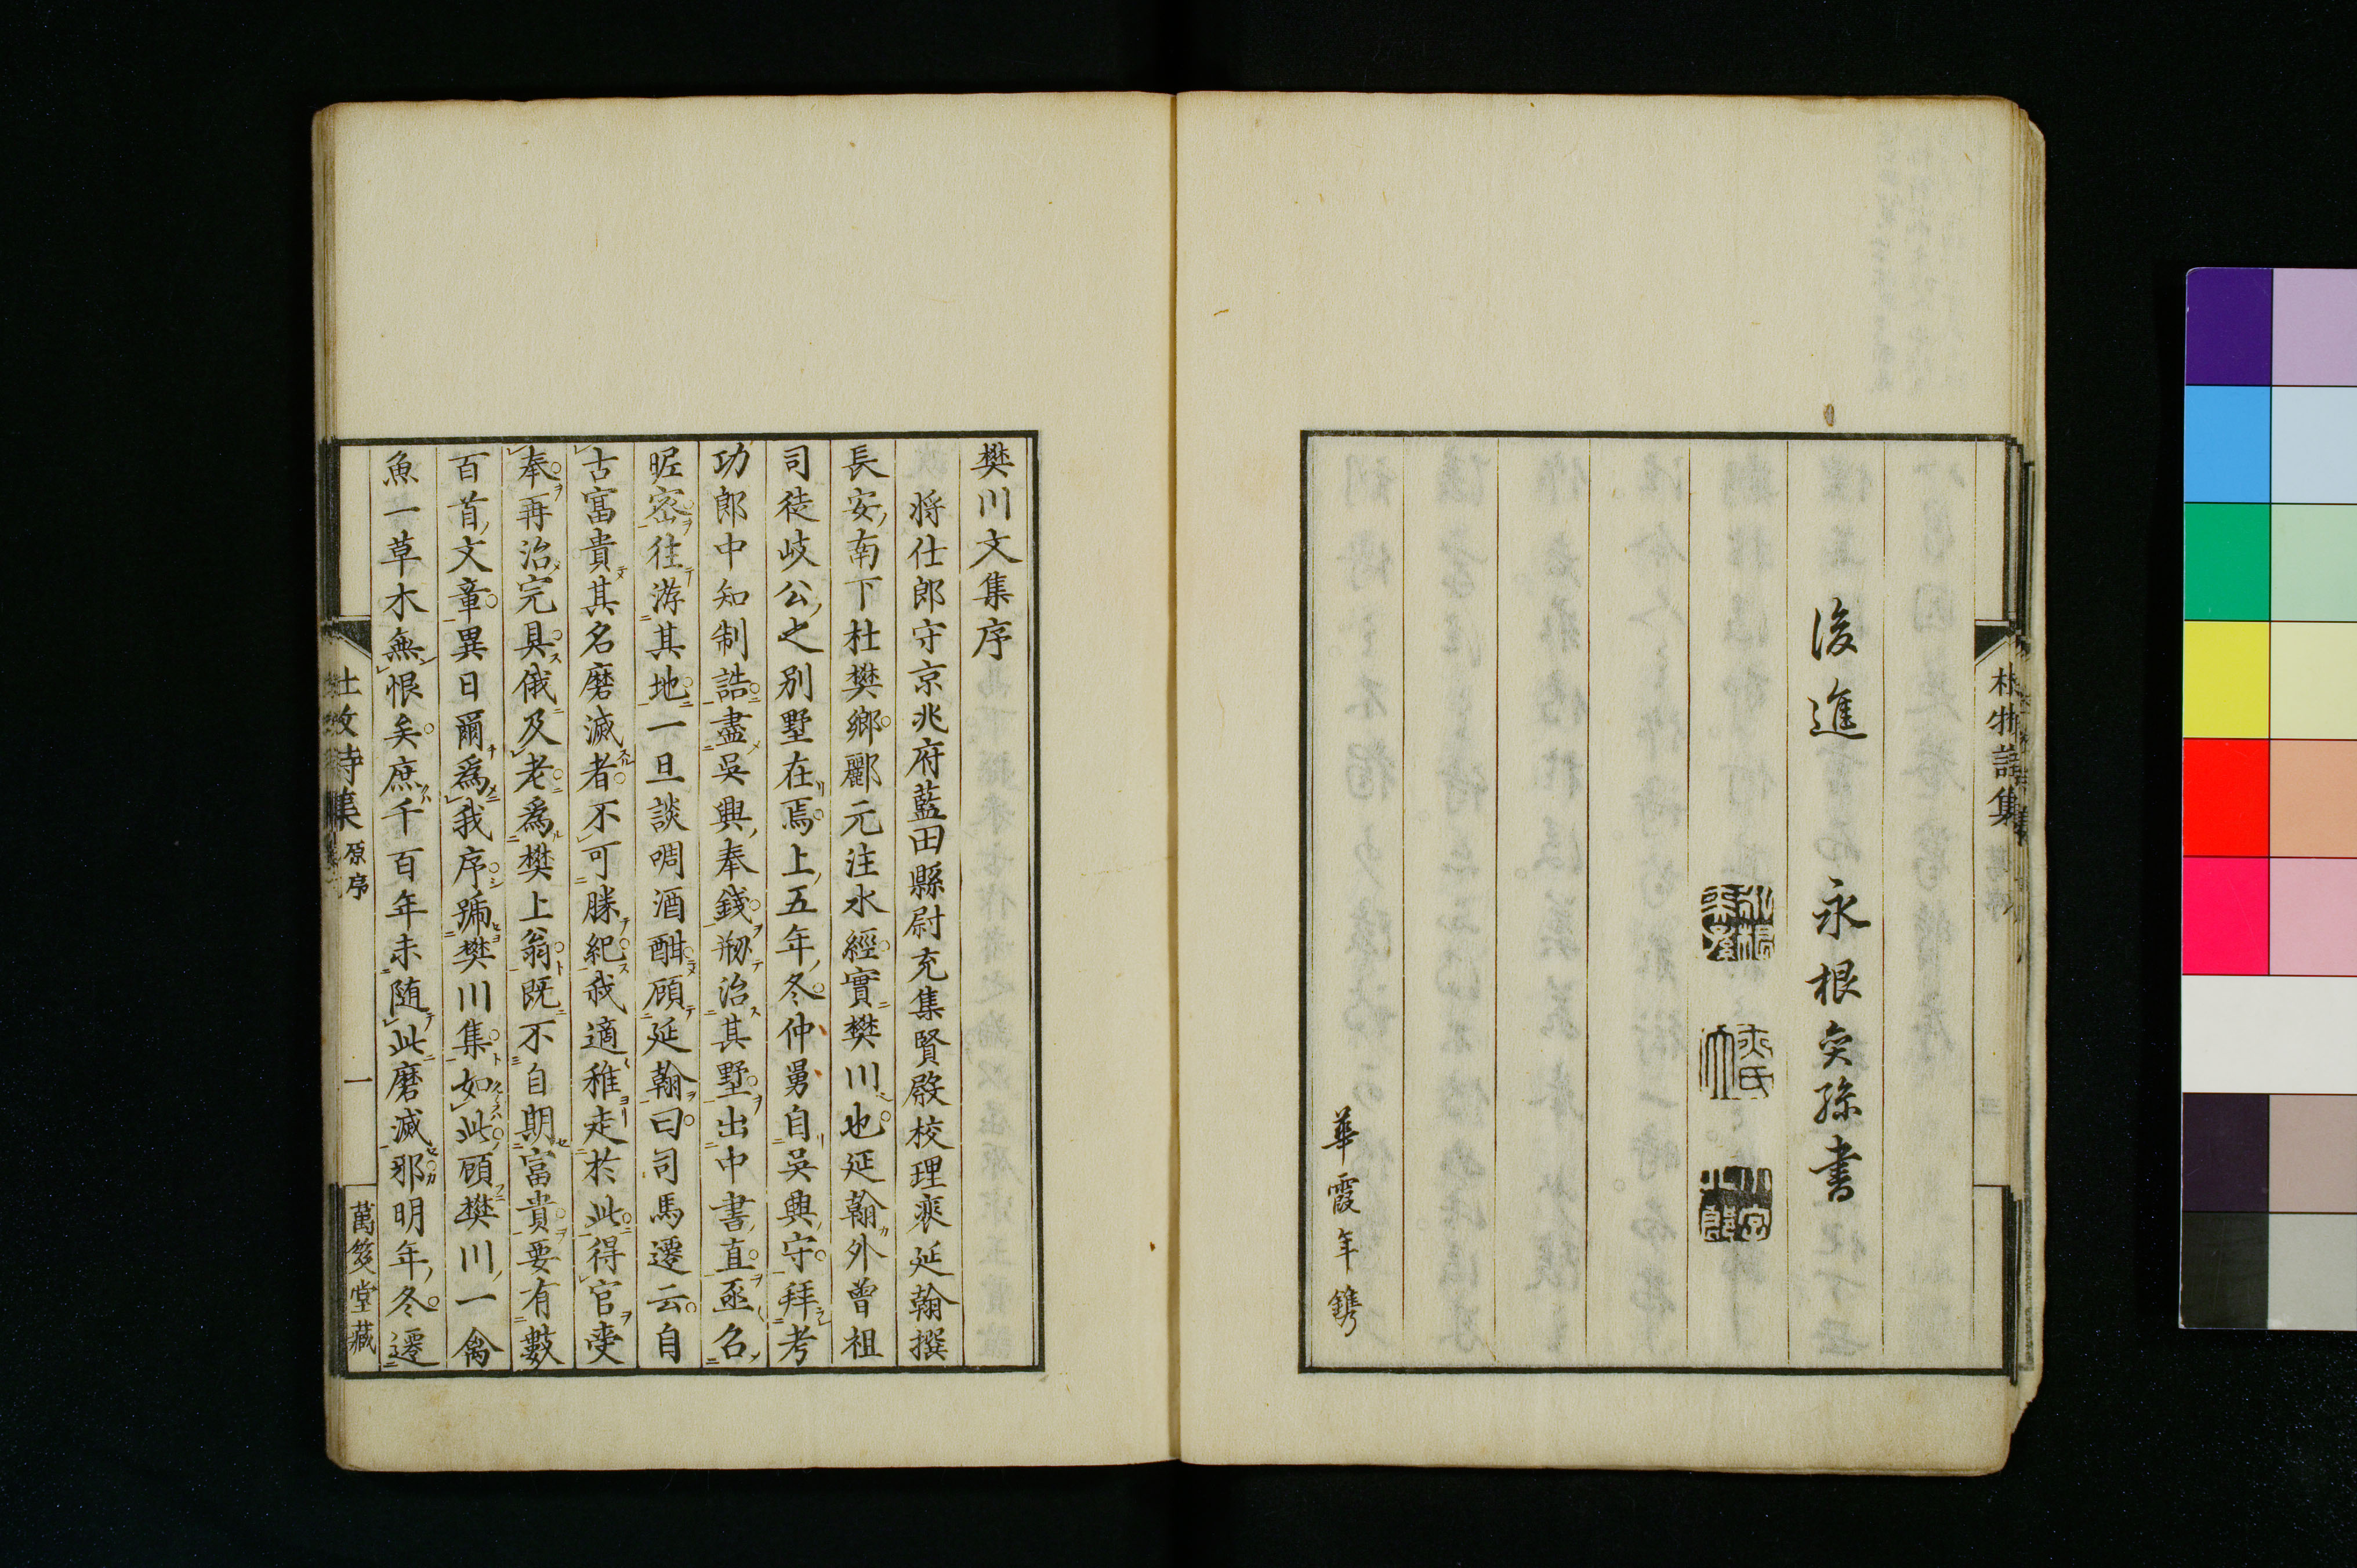 後進 永根奕孫書
華霞年鐫
樊川文集序
將仕郎守京兆府藍田縣尉充集賢殿校理裴延翰撰
長安南下杜樊鄉酈元注水經實樊川也延翰外曾祖
司徒岐公之別墅在焉上五年冬仲舅自吳興守拜考
功郎中知制誥盡吳興奉錢刱治其墅出中書直亟名
昵密往游其地一旦談啁酒酣顧延翰曰司馬遷云自
古富貴其名磨滅者不可勝紀我適稚走於此得官受
奉再治完具俄及老爲樊上翁既不自期富貴要有數
百首文章異日爾爲我序號樊川集如此顧樊川一禽
魚一草木無恨矣庶千百年未随此磨滅邪明年冬遷
杜牧詩集 原序 一 萬笈堂藏